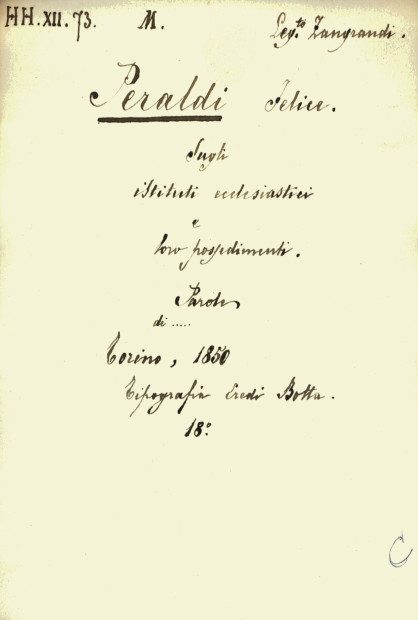 HH.XII.73. M. Leg.to Zangrandi.
Peraldi Felice.
Sugli
istituti ecclesiastici
e
loro possedimenti.
Parole
di .....
Torino, 1850
Tipografia Eredi Botta.
18°
C